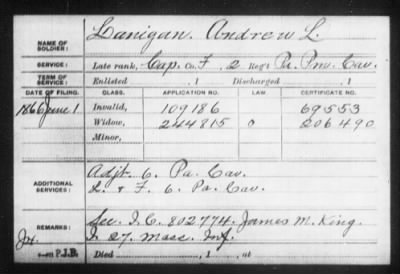 NAME OF SOLDIER: Lanigan, Andrew L.
SERVICE: Late rank, Cap. Co. F, 2 Reg't Pa. Prov. Cav.
TERM OF SERVICE: Enlisted , 1 Discharged , 1
DATE OF FILING. CLASS. APPLICATION NO. LAW. CERTIFICATE NO.
1866 June 1 Invalid, 109186 69553
Widow, 244815 206490
Minor,
ADDITIONAL SERVICES: Adjt. 6. Pa. Cav.
L. & F. 6. Pa. Cav.
REMARKS: See I. C. 802774. James M. King.
I. 27. Mass. Inf.
P.J.B. Died , 1 , at